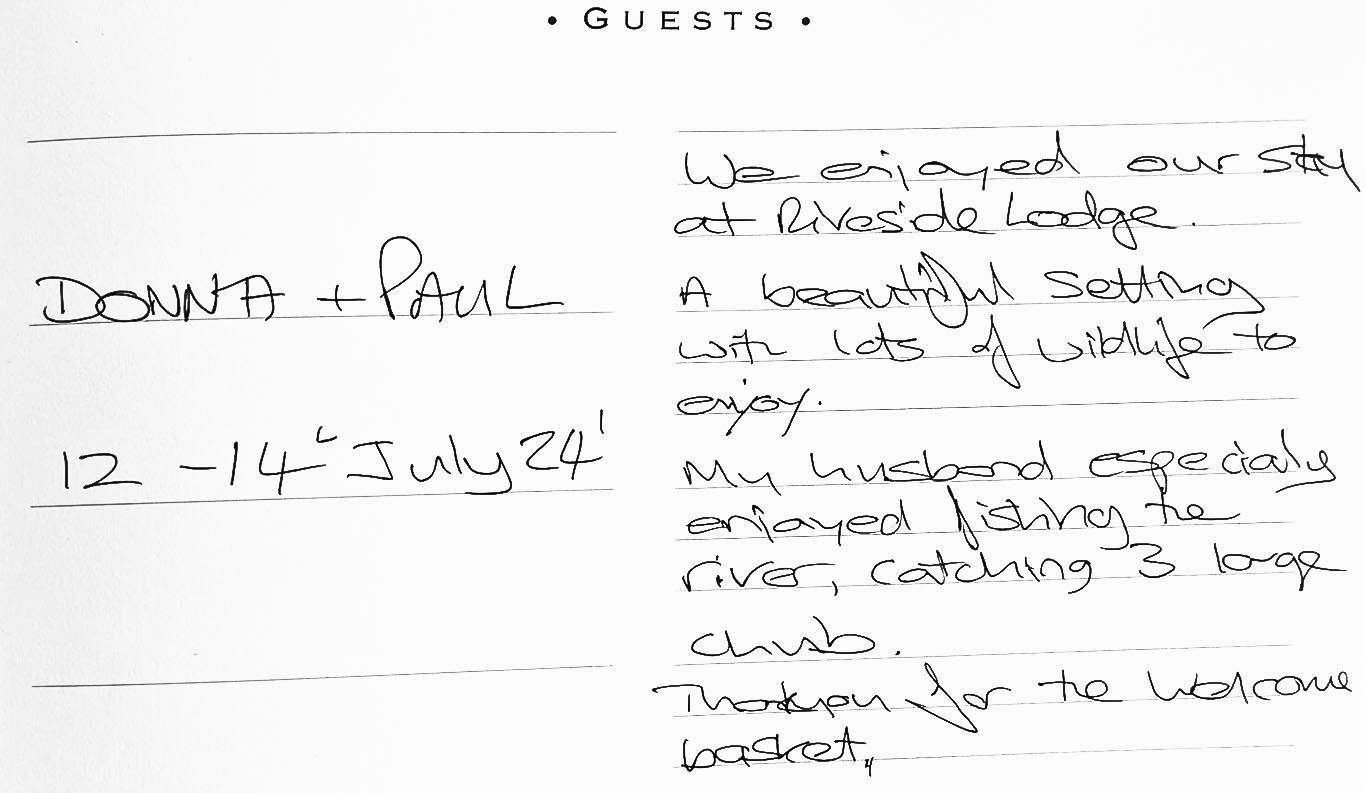 • GUESTS •
DONNA + PAUL
12 - 14 July 24'
We enjoyed our stay
at Riveside Lodge.
A beautiful setting
with lots of wildlife to
enjoy.
My husband especialy
enjoyed fishing the
river, catching 3 large
chub.
Thankyou for the welcome
basket,,